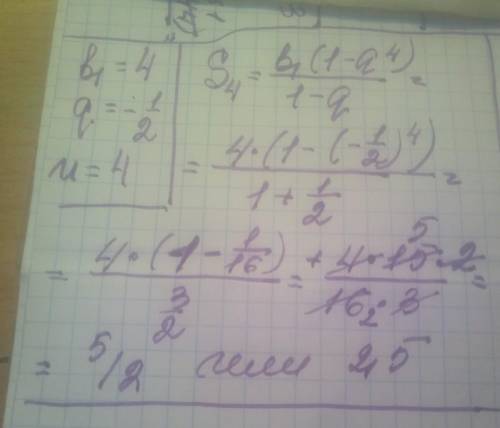 b₁ = 4
q = -1/2
n = 4
S₄ = b₁(1-q⁴)/(1-q) =
= 4·(1-(-1/2)⁴)/(1+1/2) =
= 4·(1-1/16)/(3/2) = + 4·15·2/(16·3) =
5
2
= 5/2 или 2,5